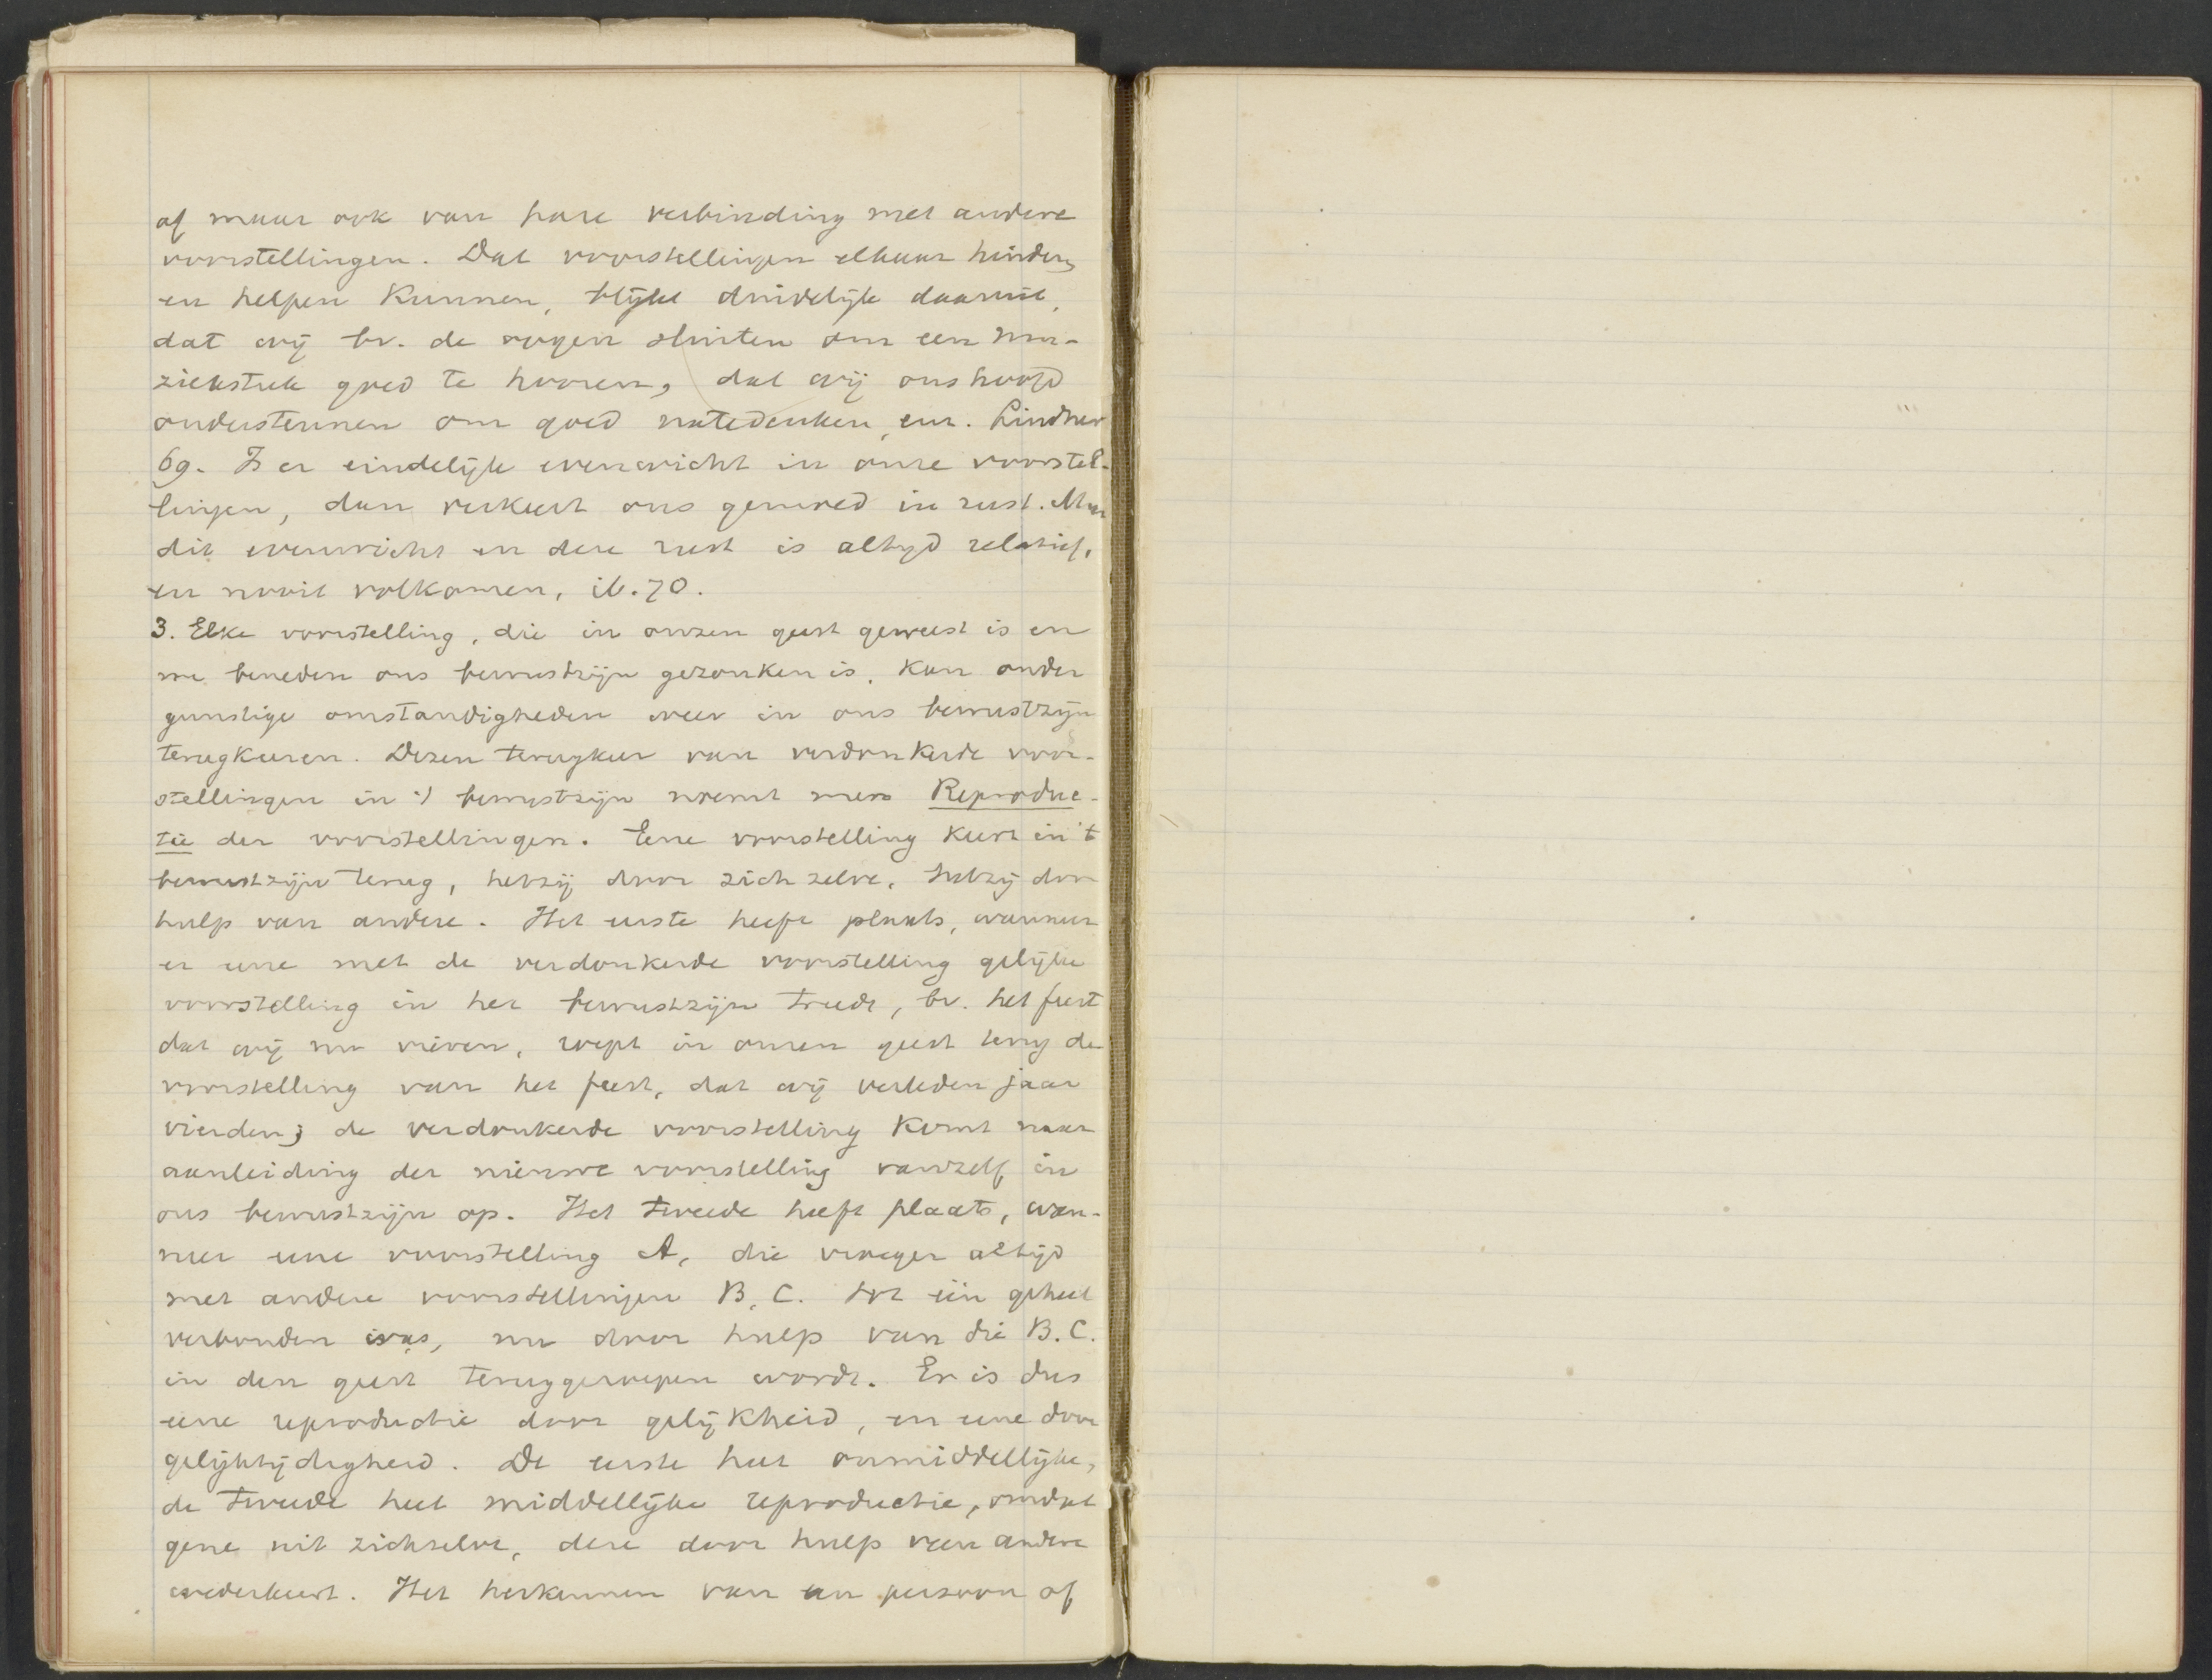 af maar ook van hare verbinding met andere
voorstellingen. Dat voorstellingen elkaar hinderen
en helpen kunnen, blijkt duidelijk daaruit,
dat wij bv. de oogen sluiten om een mu-
ziekstuk goed te hooren, dat wij ons hoofd
ondersteunen om goed natedenken, enz. Lindner
69. Is er eindelijk evenwicht in onze voorstel-
lingen, dan verkeert ons gemoed in rust. Maar
dit evenwicht en deze rust is altijd relatief,
en nooit volkomen, ib. 70.
3. Elke voorstelling, die in onzen geest geweest is en
nu beneden ons bewustzijn gezonken is, kan onder
gunstige omstandigheden weer in ons bewustzijn
terugkeeren. Dezen terugkeer van verdonkerde voor-
stellingen in 't bewustzijn noemt men Reproduc-
tie der voorstellingen. Eene voorstelling keert in 't
bewustzijn terug, hetzij door zich zelve, hetzij door
hulp van andere. Het eerste heeft plaats, wanneer
er eene met de verdonkerde voorstelling gelijke
voorstelling in het bewustzijn treedt, bv. het feest
dat wij nu vieren, roept in onzen geest terug de
voorstelling van het feest, dat wij verleden jaar
vierden; de verdonkerde voorstelling komt naar
aanleiding der nieuwe voorstelling vanzelf in
ons bewustzijn op. Het tweede heeft plaats, wan-
neer eene voorstelling A, die vroeger altijd
met andere voorstellingen B, C. tot één geheel
verbonden was, nu door hulp van die B. C.
in den geest teruggeroepen wordt. Er is dus
eene reproductie door gelijkheid, en eene door
gelijktijdigheid. De eerste heet onmiddellijke,
de tweede heet middellijke reproductie, omdat
gene uit zichzelve, deze door hulp van andere
wederkeert. Het herkennen van een persoon of